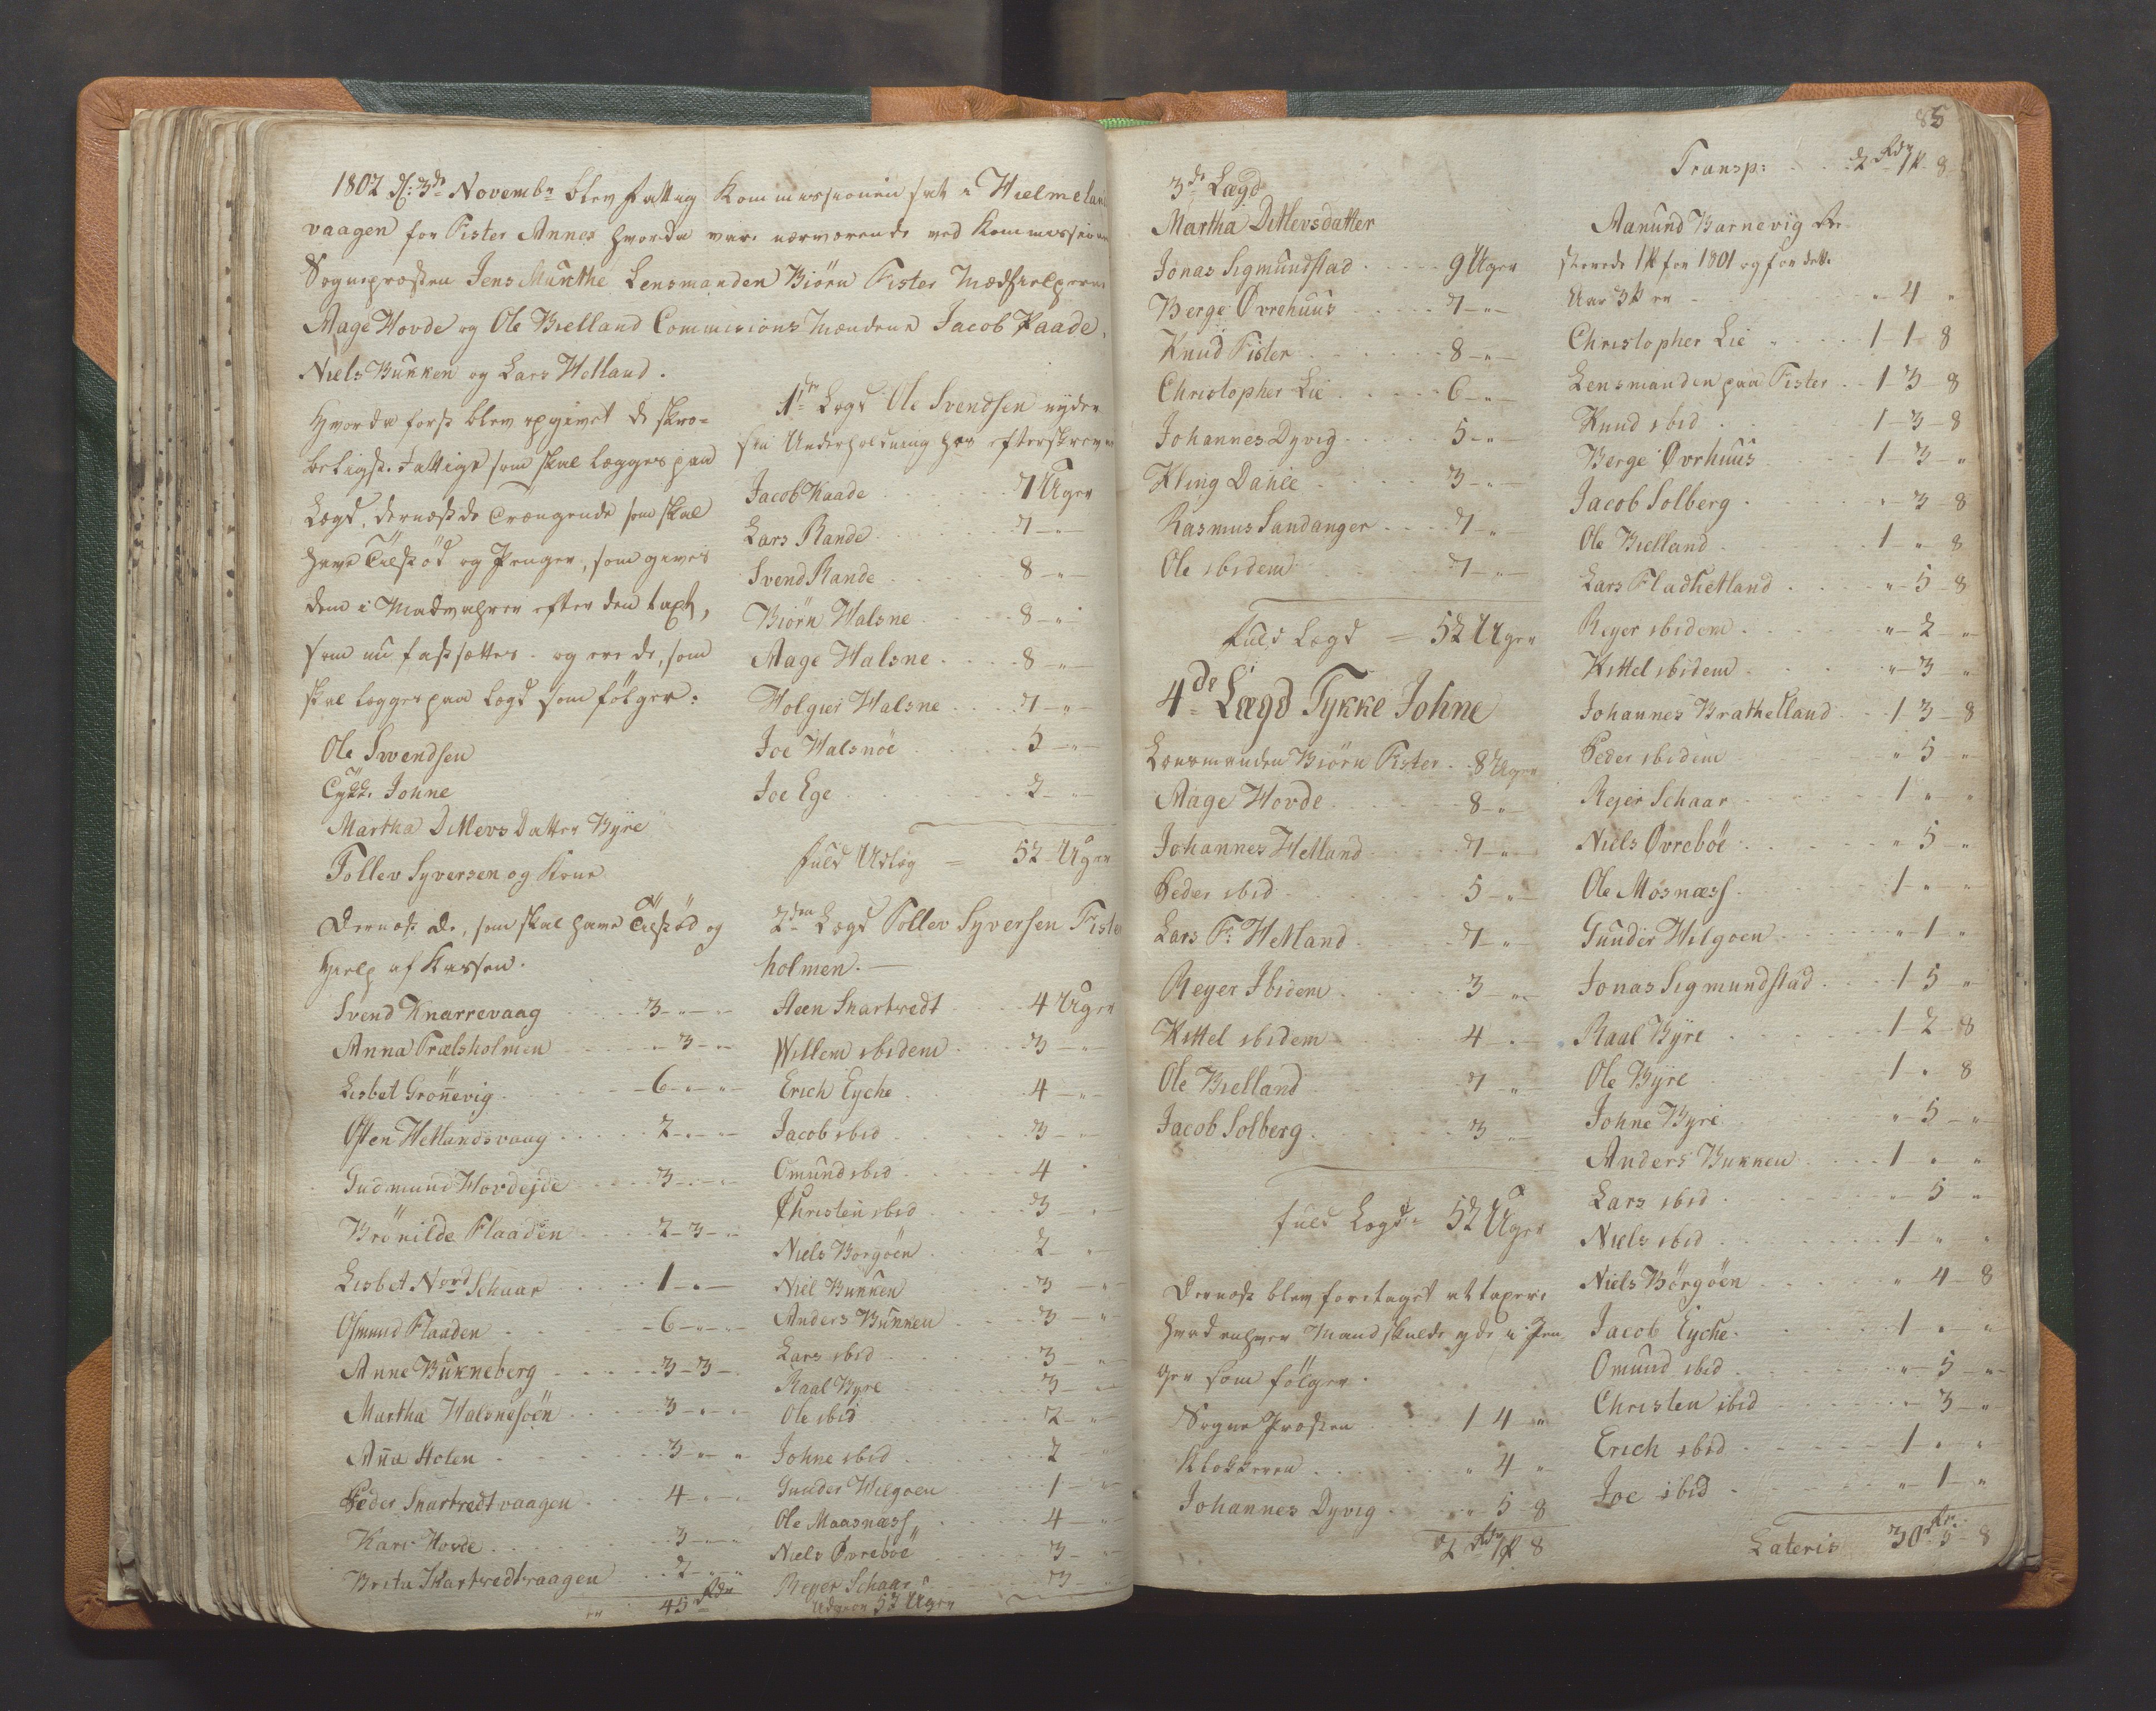 1802 d: 3de Novembr blev fattig Kommissionen sat i Hielmelands
vaagen for Fister Annex hvorda vare nærværende ved Kommissionen
Sogneprosten Jens Munthe Lensmanden Biørn Fister Medhielperne
Aage Hovde og Ole Bielland Commissions Mændene Jacob Kaade,
Niels Bunken og Lars Hetland.
Hvorda først blev opgivet de skrø-
beligste fattige som skal lægges paa
Lægd, dernæst de Trængende som skal
have Tilskød og Penger, som gives
dem i Madvahrer efter den taxt,
som nu fastsættes. og ere de, som
skal lægges paa Lægd som følger:
Ole Svendsen
Tykke Johne
Martha Ditlevs Datter Byre
Tollev Syversen og Kone
Dernæst de, som skal have Tilskød og
Hielp af Kassen.
Svend Knarrevaag 3 - " - "
Anna Trælsholmen " - 3 - "
Lisbet Grönnevig 6 - " - "
Osten Hetlandsvaag 2 - " - "
Gudmund Hovdejde 3 - " - "
Brönilde Flaaden 2 - 3 - "
Lisbet Nord Schaar 1 - " -
Osmund Flaaden 6 - " - "
Anne Bukneberg 3 - 3 -
Martha Halsnesöen 3 - " -
Anna Holen 3 - " - "
Peder Snartvedt vaagen 4 - " - "
Kari Hovde 3 - " - "
Brita Snartvedtvaagen 2 - " - "
er 45 Rdr
1te Lægd Ole Svendsen nyder
sin Underholdning hos efterskrevne
Jacob Kaade 7 Uger
Lars Rande 7 - " -
Svend Rande 8 - " -
Biørn Halsne 8 - " -
Aage Halsne 8 - " -
Holgier Halsne 7 - " -
Joe Halsnöe 5 - " -
Joe Ege 2 - " -
fuld Udlæg = 52 Uger
2den Lægd Tollev Syversen Fister
holmen.
Steen Snartvedt 4 Uger
Willem ibidem 3 - " -
Erich Eyche 4 - " -
Jacob ibid 3 - " -
Omund ibid 4 "
Christen ibid 3 - " -
Niels Borgöen 2 - " -
Niel Bunken 3 - " -
Anders Bunken 3 - " -
Lars ibid 3 - " -
Raal Byre 3 - " -
Ole ibid 2 - "
Johne ibid 2 - "
Gunder Helgoen 1 - "
Ole Maasnæss 4 - "
Niels Øvreböe 3 - "
Reyer Schaar 3 - "
Udgiør 53 Uger
3de Lægd
Martha Ditlevsdatter
Jonas Sigmundstad 9 Uger
Berge Øvrehuus 7 - " -
Knud Fister 8 - " -
Christopher Lie 6 - " -
Johannes Dyvig 5 - " -
Kling Dahle 3 - " -
Rasmus Sandanger 7 - " -
Ole ibidem 7 - " -
fuld Lægd = 52 Uger
4de Lægd Tykke Johne
Lensmanden Biørn Fister 8 Uger
Aage Hovde 8 - " -
Johannes Hetland 7 - " -
Peder ibid 5 - " -
Lars F: Hetland 7 - "
Reyer Ibidem 3 - " -
Kittel ibidem 4 - " -
Ole Bielland 7 - " -
Jacob Solberg 3 - " -
fuld Lægd = 52 Uger
Dernæst blev foretaget at taxere
hvad enhver Mand skulde yde i Pen
ger som følger.
Sogne Prosten 1 4 - "
Klokkeren " 4 "
Johannes Dyvig " 5 - 8
2 Rdr 1 # 8
85
Transp: 2 Rdr 1 # 8
Aanund Barnevig Re-
sterede 1 # for 1801 og for dette
Aar 3 # er " - 4 "
Christopher Lie 1 - 1 - 8
Lensmanden paa Fister 1 - 3 - 8
Knud ibid 1 - 3 - 8
Berge Øvrhuus 1 - 3 - "
Jacob Solberg " - 3 - 8
Ole Bielland 1 - " 8
Lars Fladhetland " - 5 - 8
Reyer ibidem " - 2 - "
Kittel ibidem " - 3 "
Johannes Brathetland 1 3 - 8
Peder ibidem " 5 - "
Rejer Schaar 1 " "
Niels Øvreböe " 5 - "
Ole Mosnæss 1 - " "
Gunder Helgoen " - 1 - "
Jonas Sigmundstad 1 5 "
Raal Byre 1 - 2 - 8
Ole Byre 1 " 8
Johne Byre " - 5 - "
Anders Bunken 1 " "
Lars ibid " 5 - "
Niels ibid 1 - " "
Niels Börgöen " 4 - 8
Jacob Eyche 1 " "
Omund ibid " - 5 - "
Christen ibid " - 3 - "
Erich ibid 1 - " - "
Joe ibid " - 1 - "
Lateris 30 Rr. 5 - 8